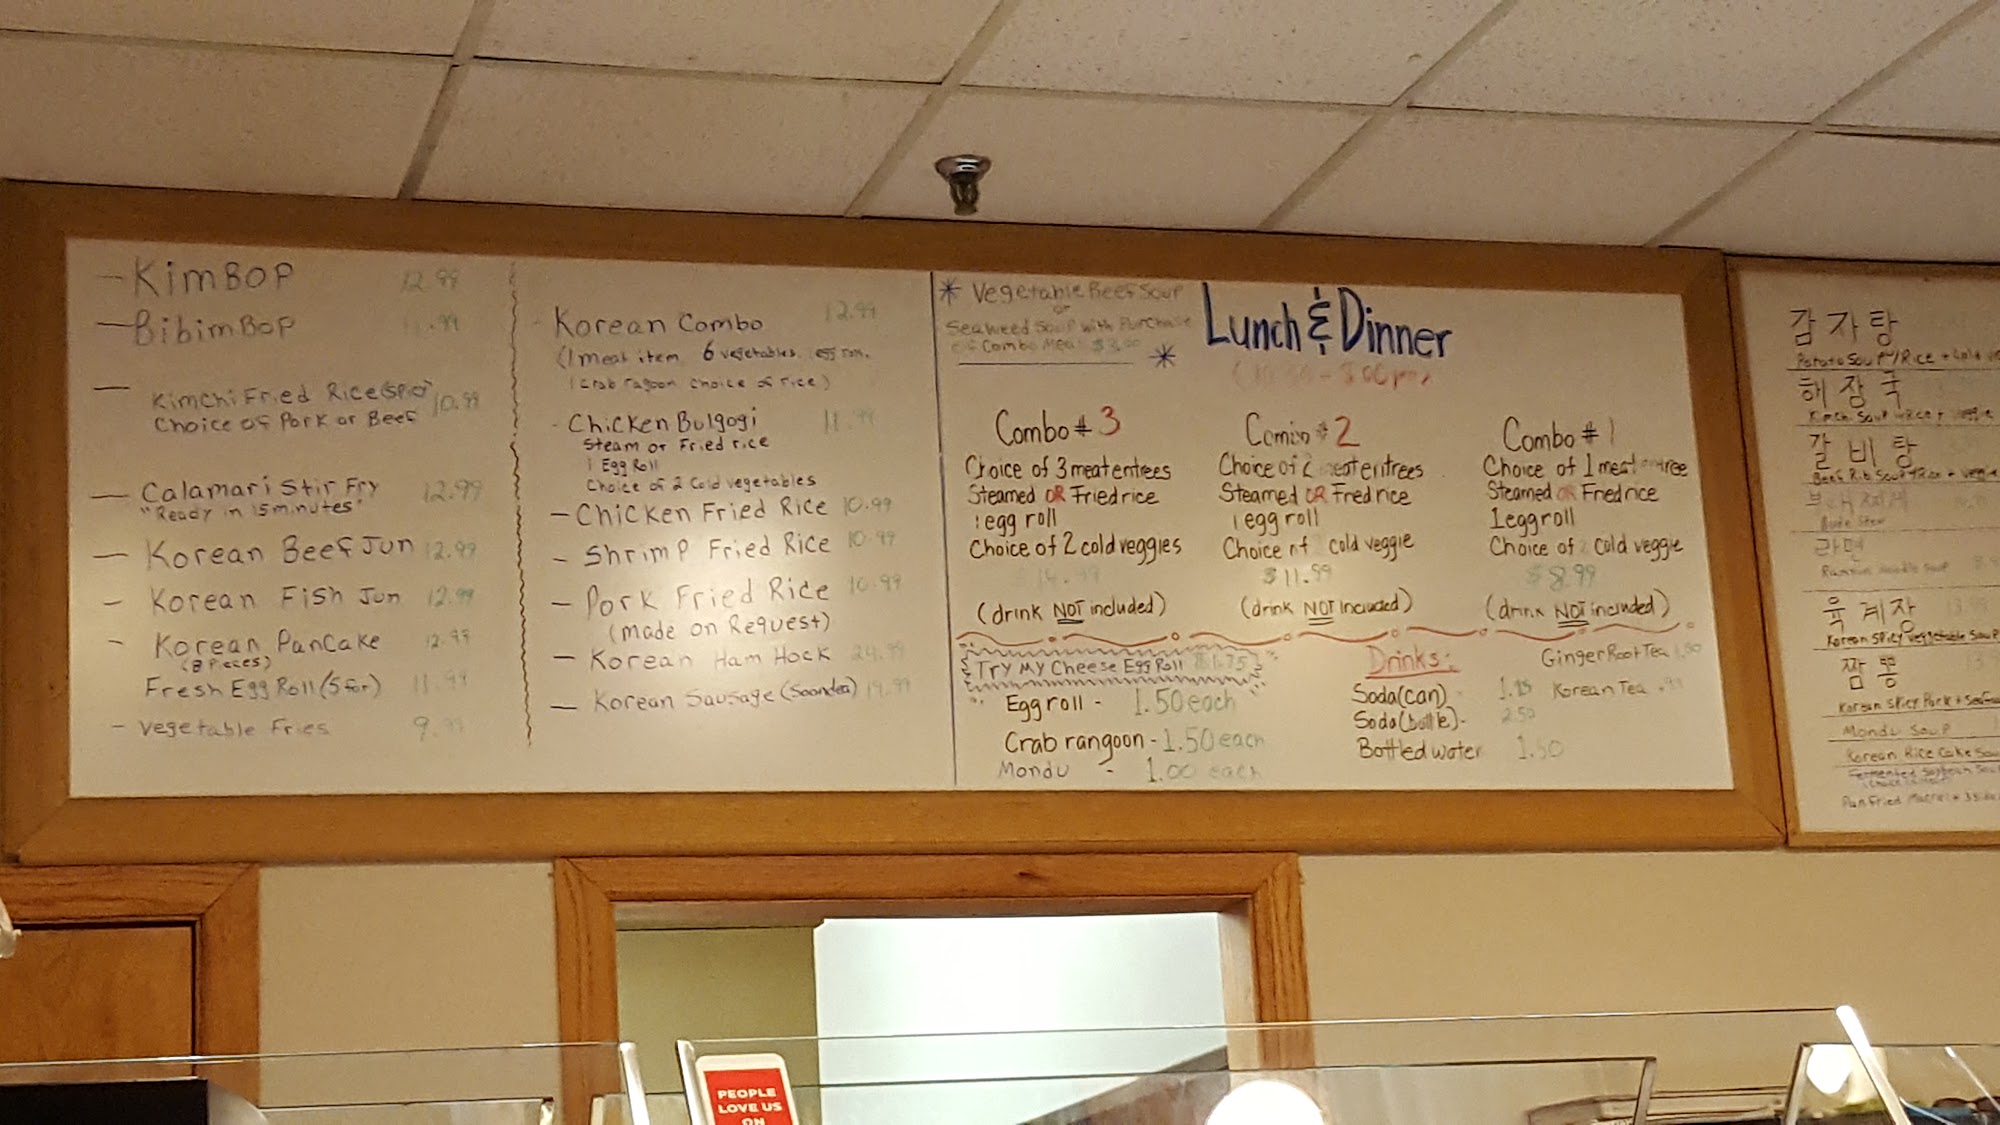 - KimBop 12.99
- BibimBop 11.99
- Kimchi Fried Rice 10.99
Choice of Pork or Beef
- Calamari Stir Fry 12.99
"Ready in 15 minutes"
- Korean Beef Jun 12.99
- Korean Fish Jun 12.99
- Korean Pancake 12.99
(8 Pieces)
Fresh Egg Roll (5 for) 11.99
- Vegetable Fries 9.99
- Korean Combo 12.99
(1 meat item, 6 vegetables, egg roll,
1 Crab ragoon choice of rice)
- Chicken Bulgogi 11.99
Steam or Fried rice
1 Egg Roll
Choice of 2 Cold vegetables
- Chicken Fried Rice 10.99
- Shrimp Fried Rice 10.99
- Pork Fried Rice 10.99
(made on Request)
- Korean Ham Hock 24.99
- Korean Sausage (Soondea) 19.99
* Vegetable Beef Soup
or
Seaweed Soup with Purchase
of Combo Meal *
Lunch & Dinner
Combo # 3
Choice of 3 meat entrees
Steamed OR Fried rice
1 egg roll
Choice of 2 cold veggies
(drink NOT included)
Combo # 2
Choice of 2 meat entrees
Steamed OR Fried rice
1 egg roll
Choice of cold veggie
$11.99
(drink NOT included)
Combo # 1
Choice of 1 meat entree
Steamed OR Fried rice
1 egg roll
Choice of cold veggie
$8.99
(drink NOT included)
Try My Cheese Egg Roll $1.75
Egg roll - 1.50 each
Crab rangoon - 1.50 each
Mondu - 1.00 each
Drinks:
Soda (can)
Soda (bottle) - 2.50
Bottled water 1.50
Ginger Root Tea
Korean Tea .99
감자탕
Potato Soup w/Rice + Cold
해장국
Kimchi Soup
갈비탕
Beef Rib Soup
라면
Ramen Noodle Soup
육계장
Korean Spicy Veggetable Soup
짬뽕
Korean Spicy Pork + Seafood
Mondu Soup
Korean Rice Cake Soup
PEOPLE
LOVE US
ON